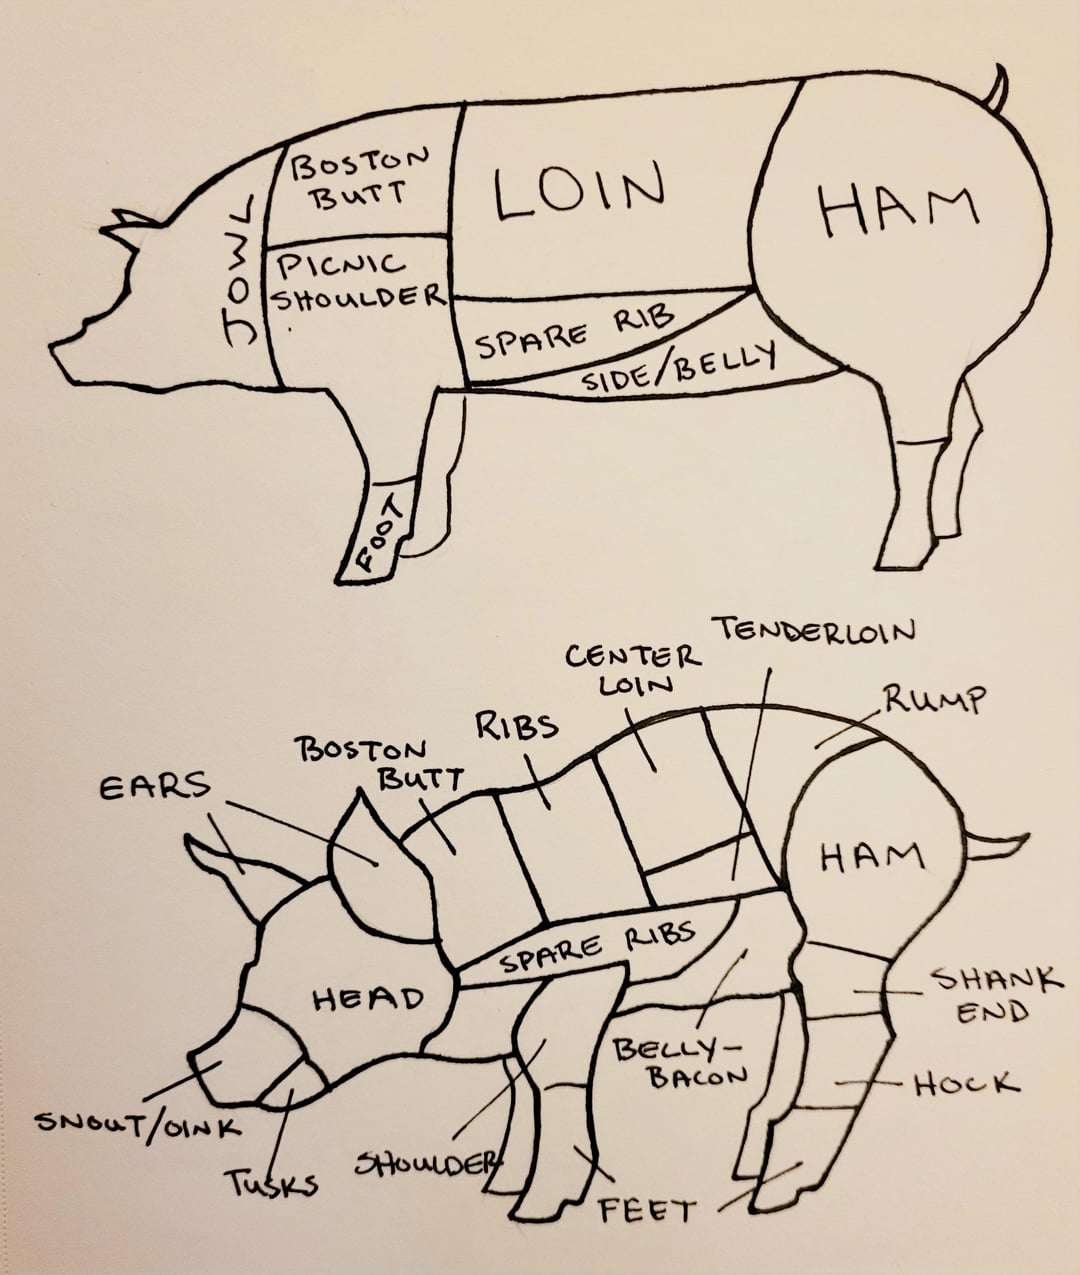 BOSTON
BUTT
LOIN
HAM
JOWL
PICNIC
SHOULDER
SPARE RIB
SIDE/BELLY
FOOT
TENDERLOIN
CENTER
LOIN
RUMP
RIBS
BOSTON
BUTT
EARS
HAM
SPARE RIBS
HEAD
SHANK
END
BELLY-
BACON
HOCK
SNOUT/OINK
SHOULDER
TUSKS
FEET